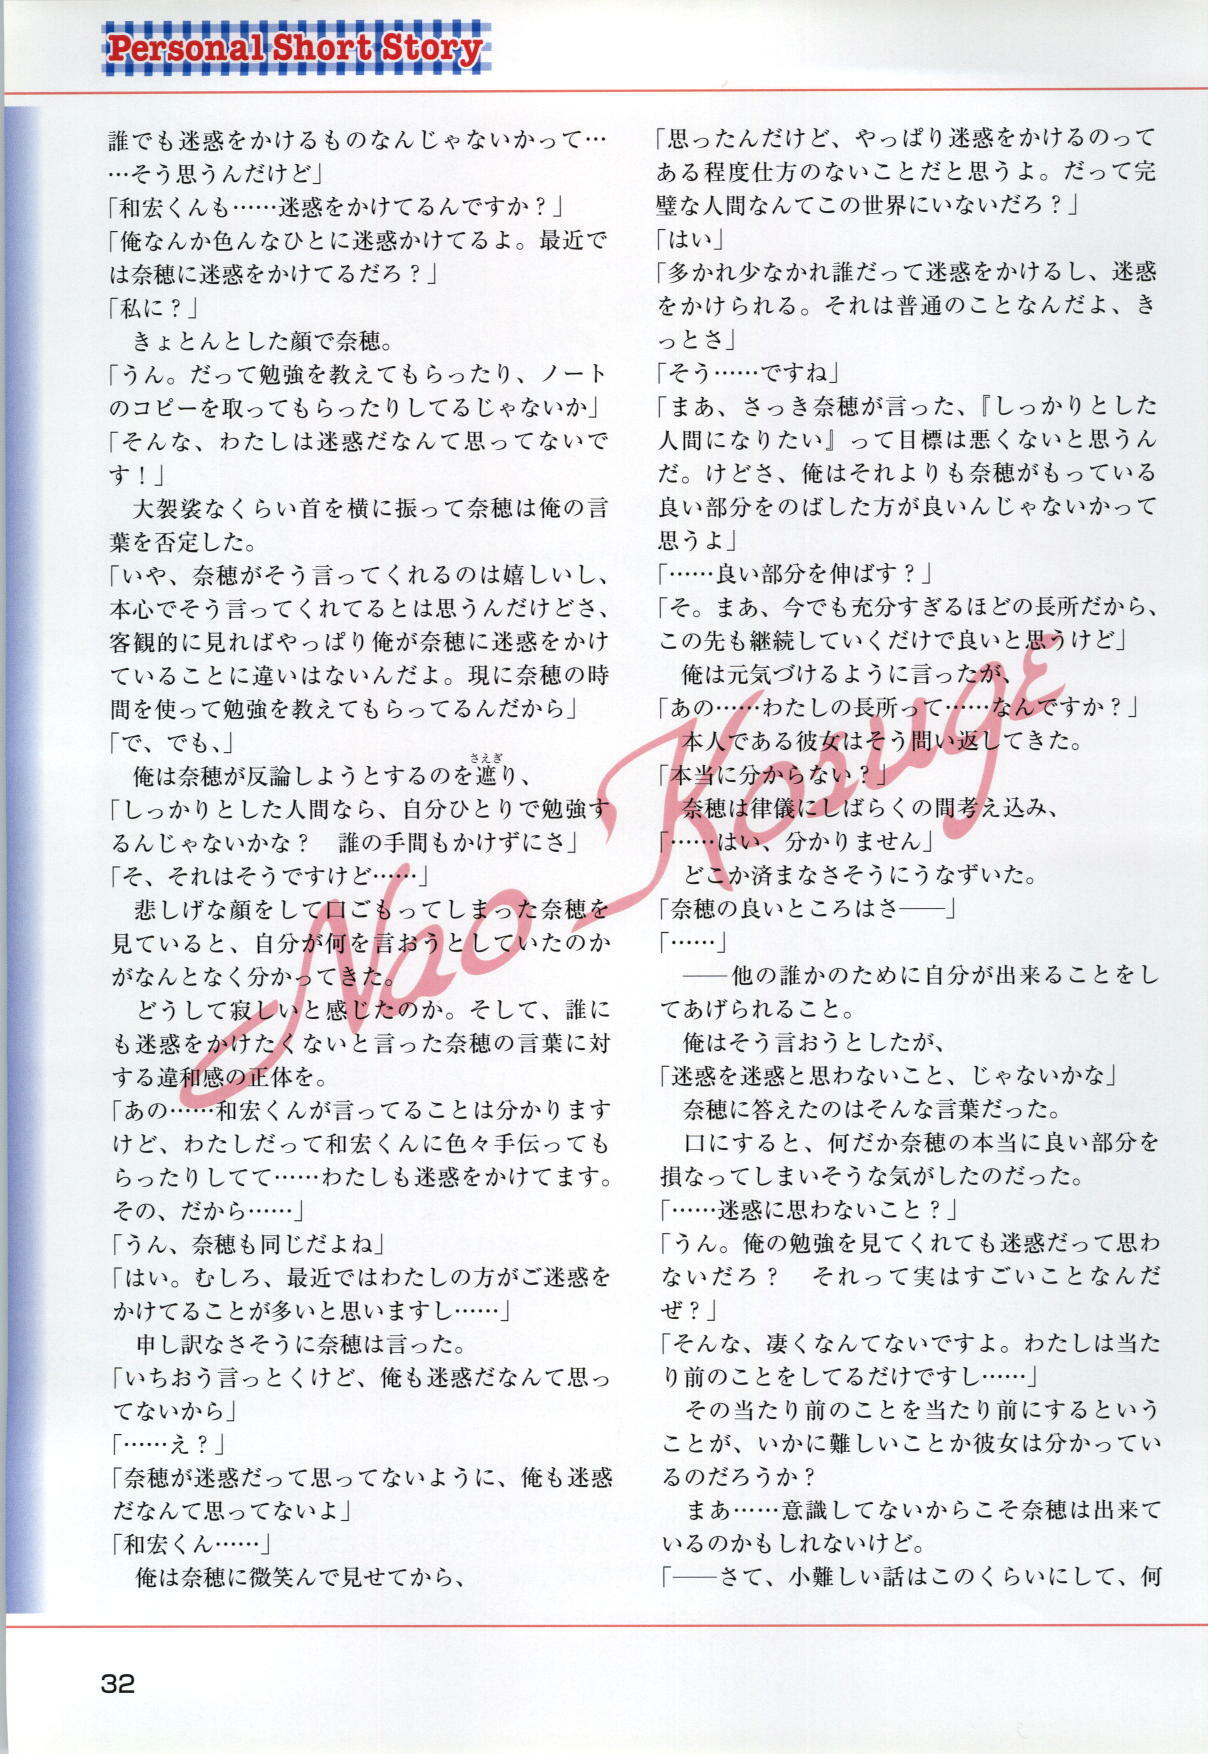 Personal Short Story
誰でも迷惑をかけるものなんじゃないかって…
…そう思うんだけど」
「和宏くんも……迷惑をかけてるんですか？」
「俺なんか色んなひとに迷惑かけてるよ。最近で
は奈穂に迷惑をかけてるだろ？」
「私に？」
　きょとんとした顔で奈穂。
「うん。だって勉強を教えてもらったり、ノート
のコピーを取ってもらったりしてるじゃないか」
「そんな、わたしは迷惑だなんて思ってないで
す！」
　大袈裟なくらい首を横に振って奈穂は俺の言
葉を否定した。
「いや、奈穂がそう言ってくれるのは嬉しいし、
本心でそう言ってくれてるとは思うんだけどさ、
客観的に見ればやっぱり俺が奈穂に迷惑をかけ
ていることに違いはないんだよ。現に奈穂の時
間を使って勉強を教えてもらってるんだから」
「で、でも、」
さえぎ
　俺は奈穂が反論しようとするのを遮り、
「しっかりとした人間なら、自分ひとりで勉強す
るんじゃないかな？　誰の手間もかけずにさ」
「そ、それはそうですけど……」
　悲しげな顔をして口ごもってしまった奈穂を
見ていると、自分が何を言おうとしていたのか
がなんとなく分かってきた。
　どうして寂しいと感じたのか。そして、誰に
も迷惑をかけたくないと言った奈穂の言葉に対
する違和感の正体を。
「あの……和宏くんが言ってることは分かります
けど、わたしだって和宏くんに色々手伝っても
らったりしてて……わたしも迷惑をかけてます。
その、だから……」
「うん、奈穂も同じだよね」
「はい。むしろ、最近ではわたしの方がご迷惑を
かけてることが多いと思いますし……」
　申し訳なさそうに奈穂は言った。
「いちおう言っとくけど、俺も迷惑だなんて思っ
てないから」
「……え？」
「奈穂が迷惑だって思ってないように、俺も迷惑
だなんて思ってないよ」
「和宏くん……」
　俺は奈穂に微笑んで見せてから、
「思ったんだけど、やっぱり迷惑をかけるのって
ある程度仕方のないことだと思うよ。だって完
璧な人間なんてこの世界にいないだろ？」
「はい」
「多かれ少なかれ誰だって迷惑をかけるし、迷惑
をかけられる。それは普通のことなんだよ、き
っとさ」
「そう……ですね」
「まあ、さっき奈穂が言った、『しっかりとした
人間になりたい』って目標は悪くないと思うん
だ。けどさ、俺はそれよりも奈穂がもっている
良い部分をのばした方が良いんじゃないかって
思うよ」
「……良い部分を伸ばす？」
「そ。まあ、今でも充分すぎるほどの長所だから、
この先も継続していくだけで良いと思うけど」
　俺は元気づけるように言ったが、
「あの……わたしの長所って……なんですか？」
　本人である彼女はそう問い返してきた。
「本当に分からない？」
　奈穂は律儀にしばらくの間考え込み、
「……はい、分かりません」
　どこか済まなさそうにうなずいた。
「奈穂の良いところはさ――」
「……」
　――他の誰かのために自分が出来ることをし
てあげられること。
　俺はそう言おうとしたが、
「迷惑を迷惑と思わないこと、じゃないかな」
　奈穂に答えたのはそんな言葉だった。
　口にすると、何だか奈穂の本当に良い部分を
損なってしまいそうな気がしたのだった。
「……迷惑に思わないこと？」
「うん。俺の勉強を見てくれても迷惑だって思わ
ないだろ？　それって実はすごいことなんだ
ぜ？」
「そんな、凄くなんてないですよ。わたしは当た
り前のことをしてるだけですし……」
　その当たり前のことを当たり前にするという
ことが、いかに難しいことか彼女は分かってい
るのだろうか？
　まあ……意識してないからこそ奈穂は出来て
いるのかもしれないけど。
「――さて、小難しい話はこのくらいにして、何
Nao Kosuge
32